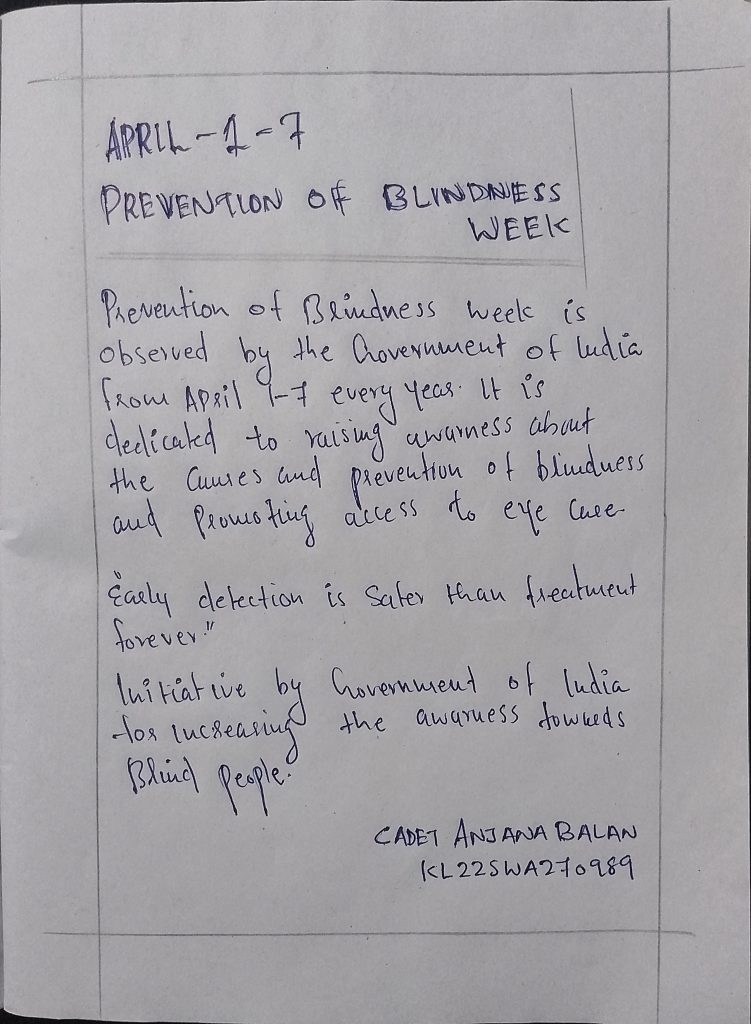 APRIL - 1 - 7
PREVENTION OF BLINDNESS
WEEK
Prevention of Blindness week is
observed by the Government of India
from April 1-7 every year. It is
dedicated to raising awarness about
the causes and prevention of blindness
and Promoting access to eye care
"Early detection is Safer than treatment
forever."
Initiative by Government of India
for increasing the awarness towards
Blind people.
CADET ANJANA BALAN
KL22SWA270989